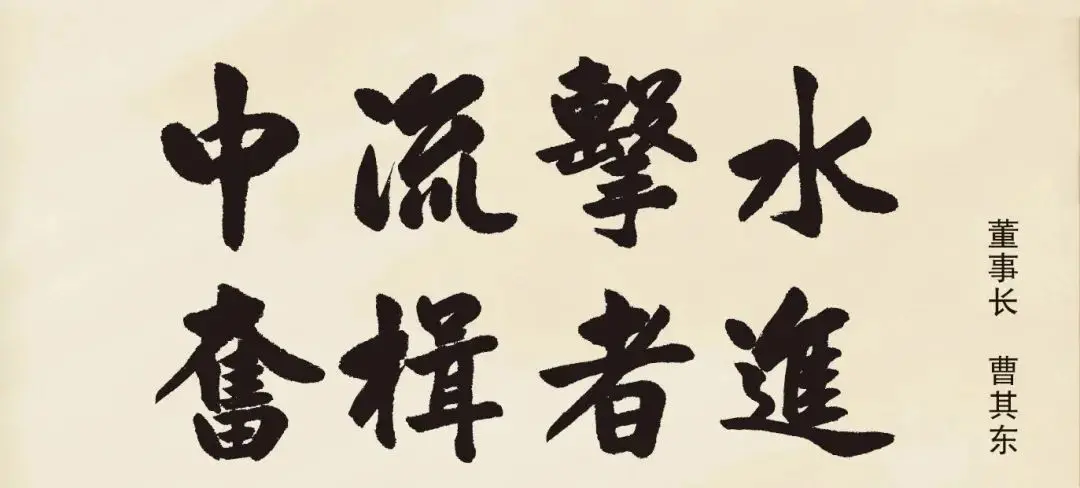 中流擊水
奮楫者進
董事长 曹其东